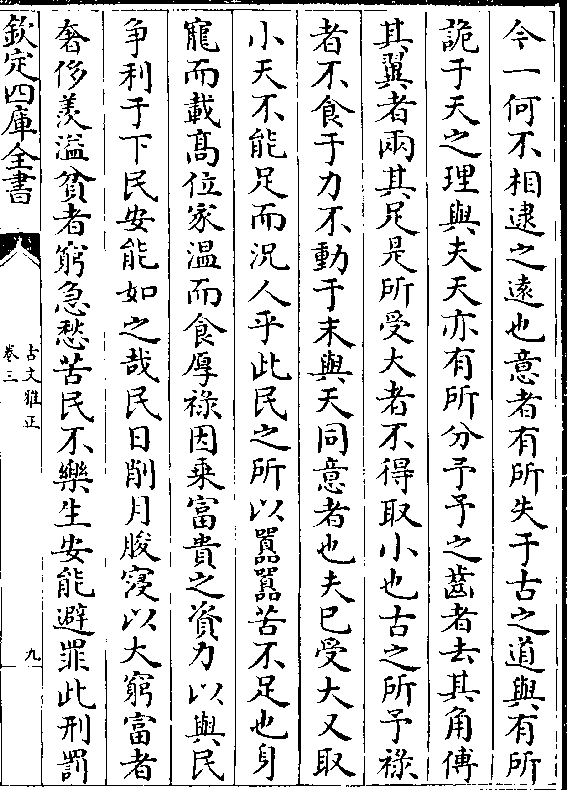 今一何不相逮之遠也意者有所失于古之道與有所
詭于天之理與夫天亦有所分予予之齒者去其角傅
其翼者兩其足是所受大者不得取小也古之所予祿
者不食于力不動于末與天同意者也夫已受大又取
小天不能足而況人乎此民之所以嚚嚚苦不足也身
寵而載髙位家温而食厚祿因乗富貴之資力以與民
争利于下民安能如之哉民日削月朘寖以大窮富者
奢侈羡溢貧者窮急愁苦民不樂生安能避罪此刑罰
欽定四庫全書
古文雅正
卷三
九